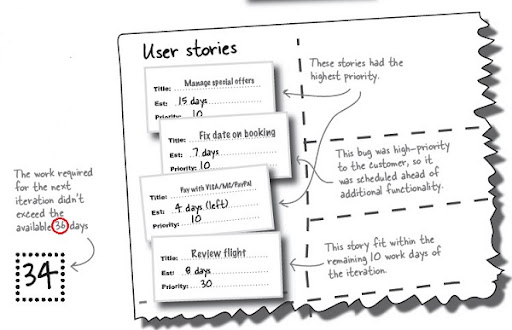 User stories
Title: Manage special offers
Est: 15 days
Priority: 10
Title: Fix date on booking
Est: 7 days
Priority: 10
Title: Pay with Visa/MC/PayPal
Est: 4 days (left)
Priority: 10
Title: Review flight
Est: 8 days
Priority: 30
These stories had the
highest priority.
This bug was high-priority
to the customer, so it
was scheduled ahead of
additional functionality.
This story fit within the
remaining 10 work days of
the iteration.
The work required
for the next
iteration didn't
exceed the
available 36 days
34